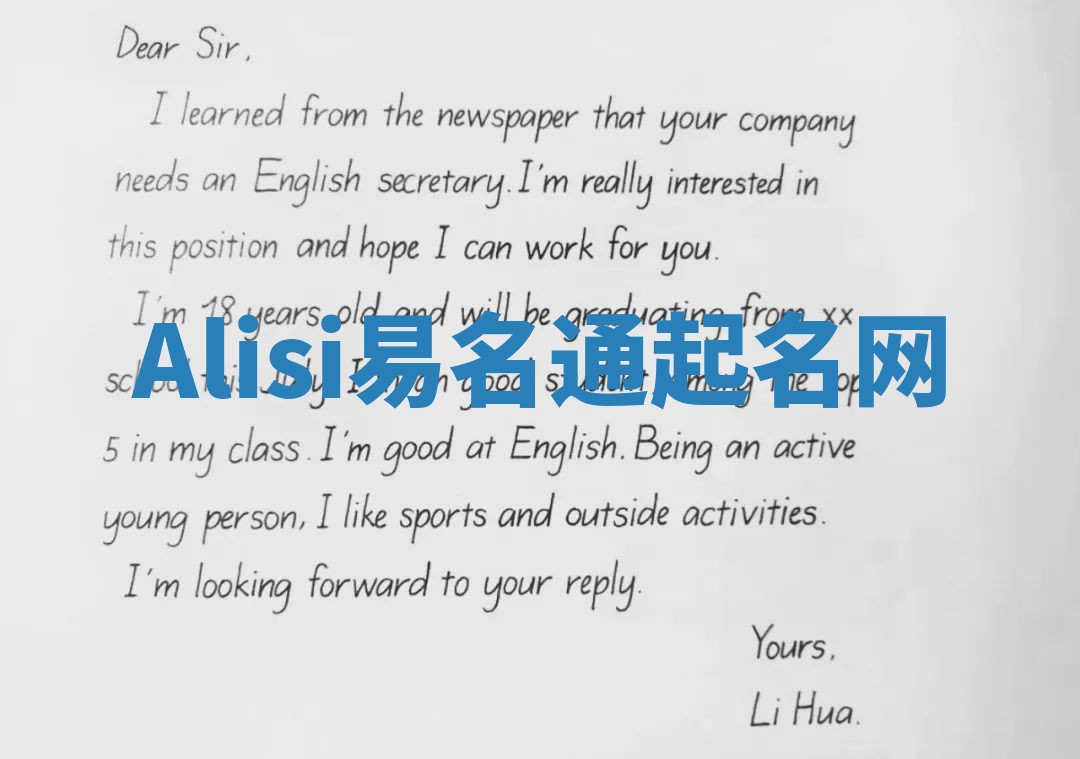 Dear Sir,
I learned from the newspaper that your company
needs an English secretary. I'm really interested in
this position and hope I can work for you.
I'm 18 years old and will be graduating from xx
Alisi易名通起名网
school this July. I am good student, among the top
5 in my class. I'm good at English. Being an active
young person, I like sports and outside activities.
I'm looking forward to your reply.
Yours,
Li Hua.